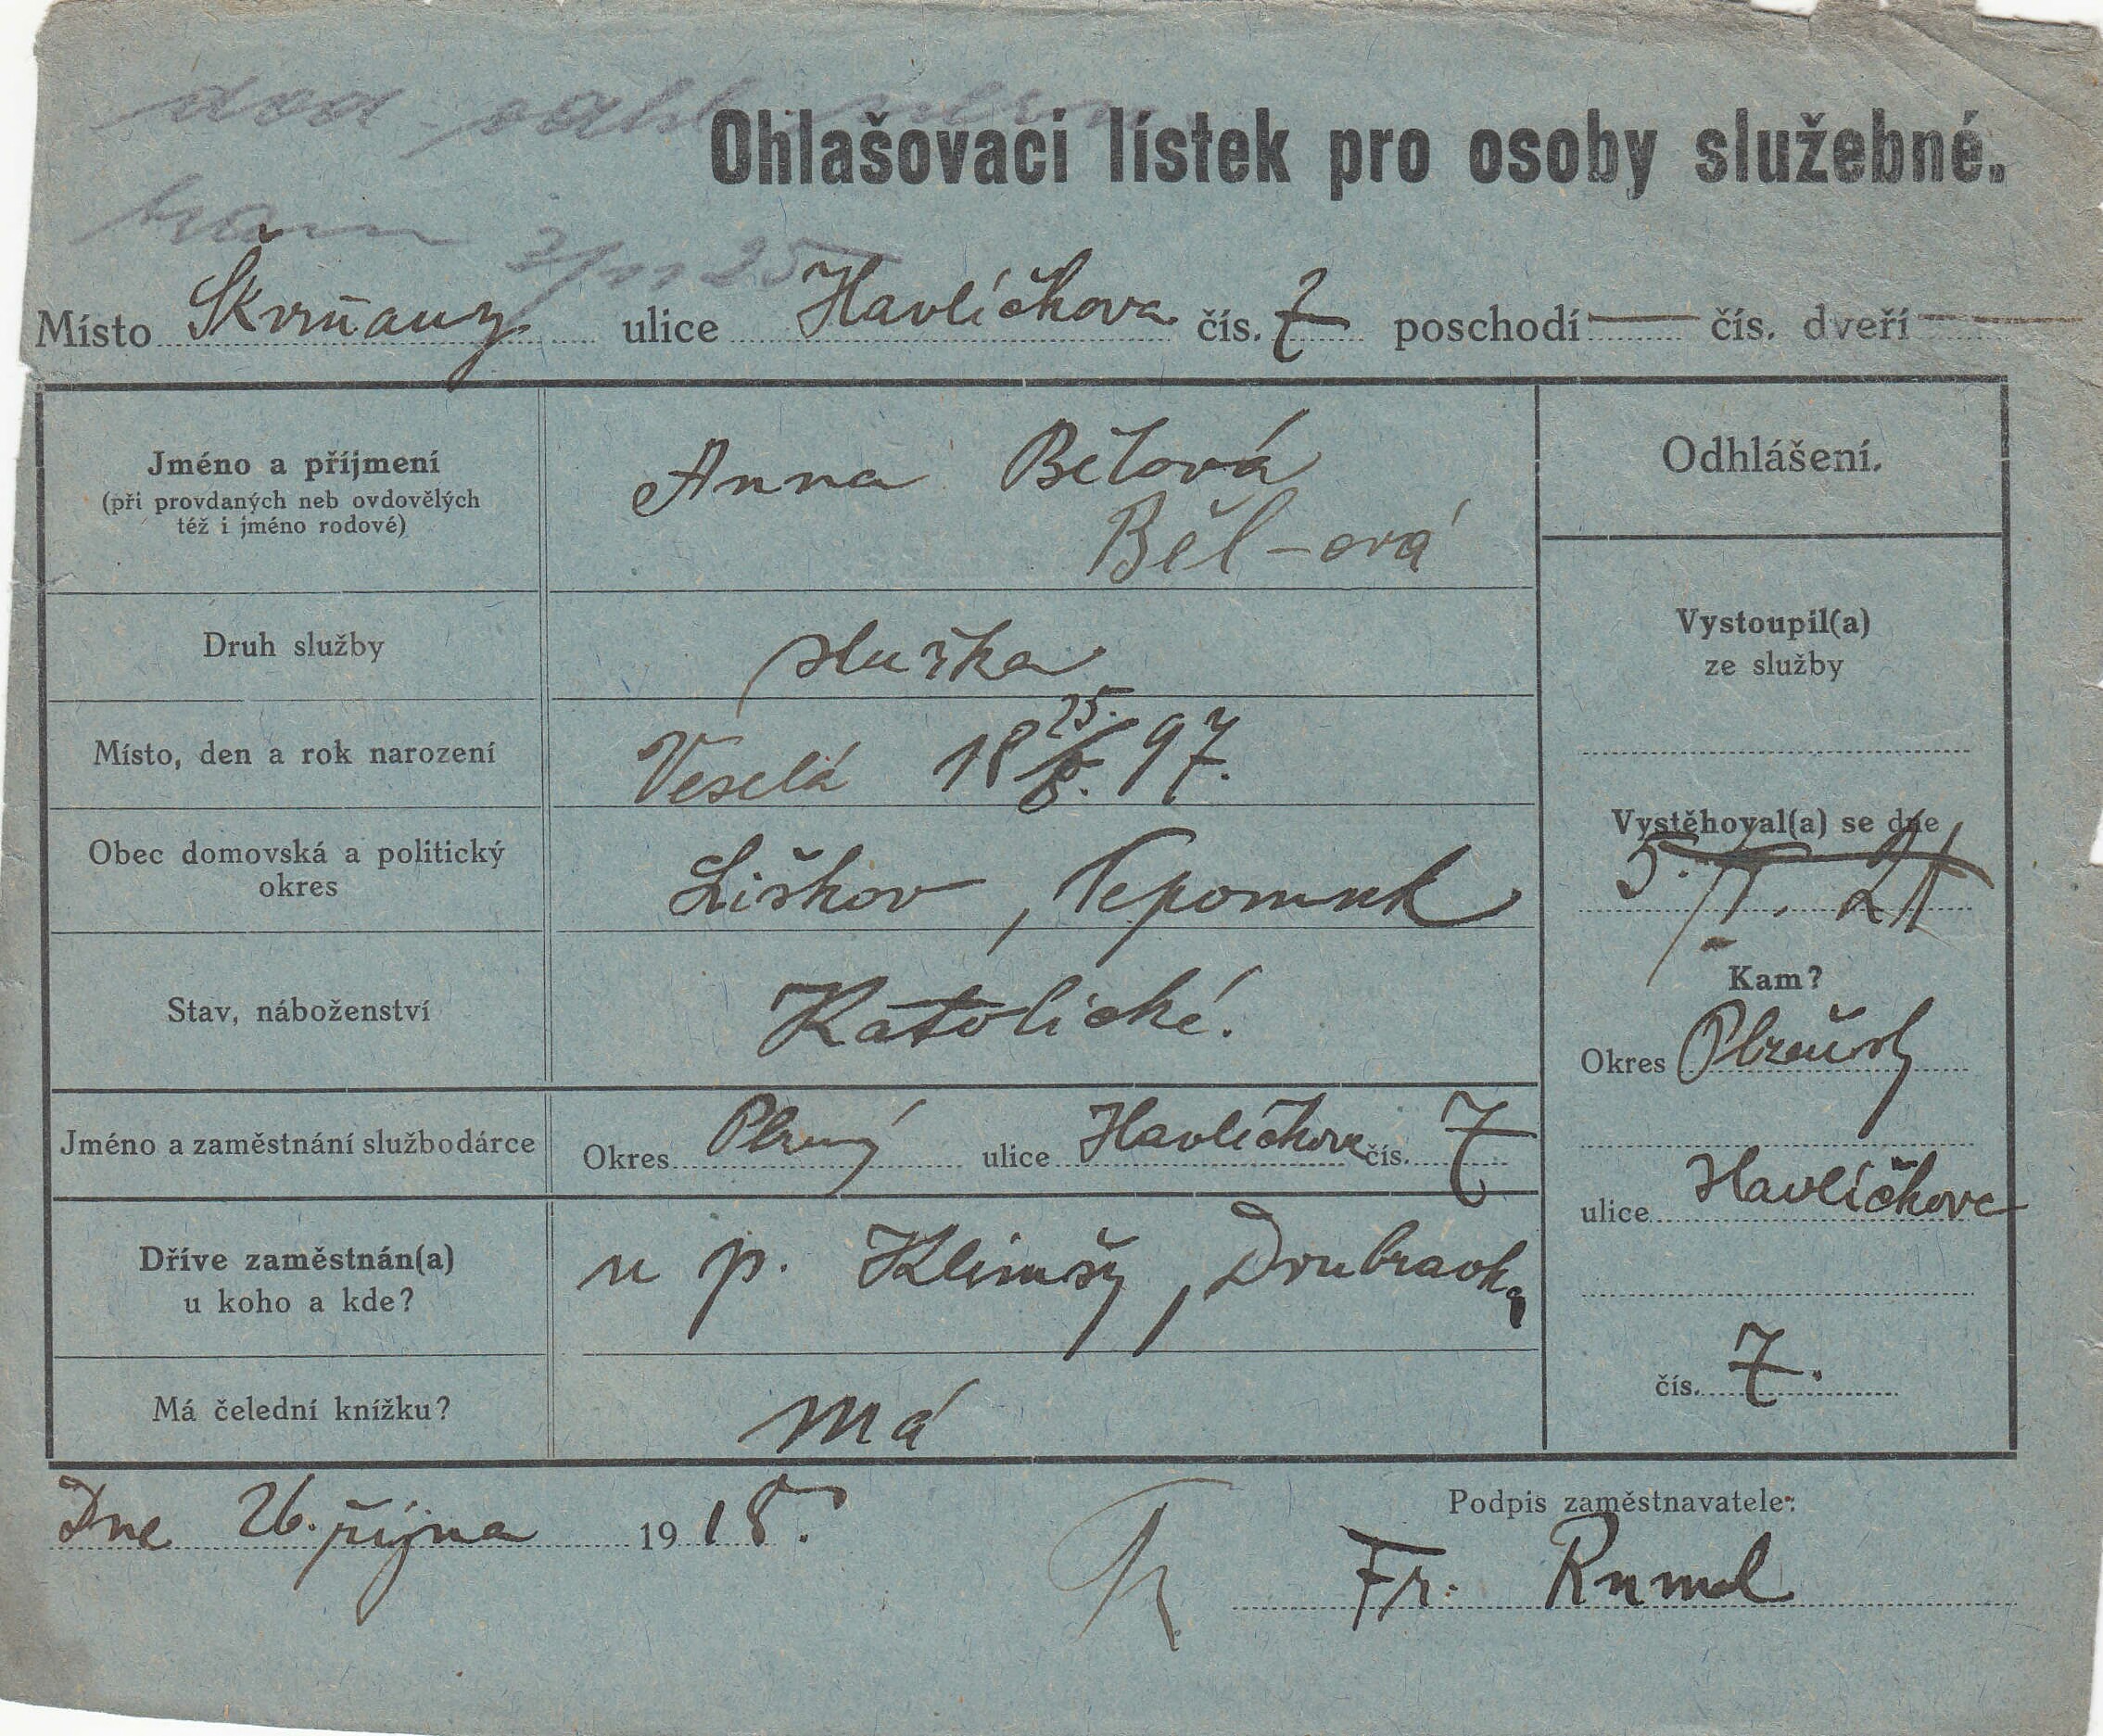 Ohlašovaci lístek pro osoby služebné.
kam
Místo Škvrňany ulice Havlíčkova čís. 7 poschodí — čís. dveří —
Jméno a příjmení
(při provdaných neb ovdovělých
též i jméno rodové)
Anna Bělová
Běl-ová
Druh služby
služka
Místo, den a rok narození
Veselá 18 25./8. 97.
Obec domovská a politický
okres
Liškov, Nepomuk
Stav, náboženství
Katolické.
Jméno a zaměstnání službodárce
Okres Plzený ulice Havlíčkova čís. 7
Dříve zaměstnán(a)
u koho a kde?
u p. Klimšy, Doubravka
Má čelední knížku?
Má
Odhlášení.
Vystoupil(a)
ze služby
Vystěhoval(a) se dne
Kam?
Okres Plzeňský
ulice Havlíčkova
čís. 7.
Dne 26. října 1918.
Podpis zaměstnavatele:
Fr. Ruml